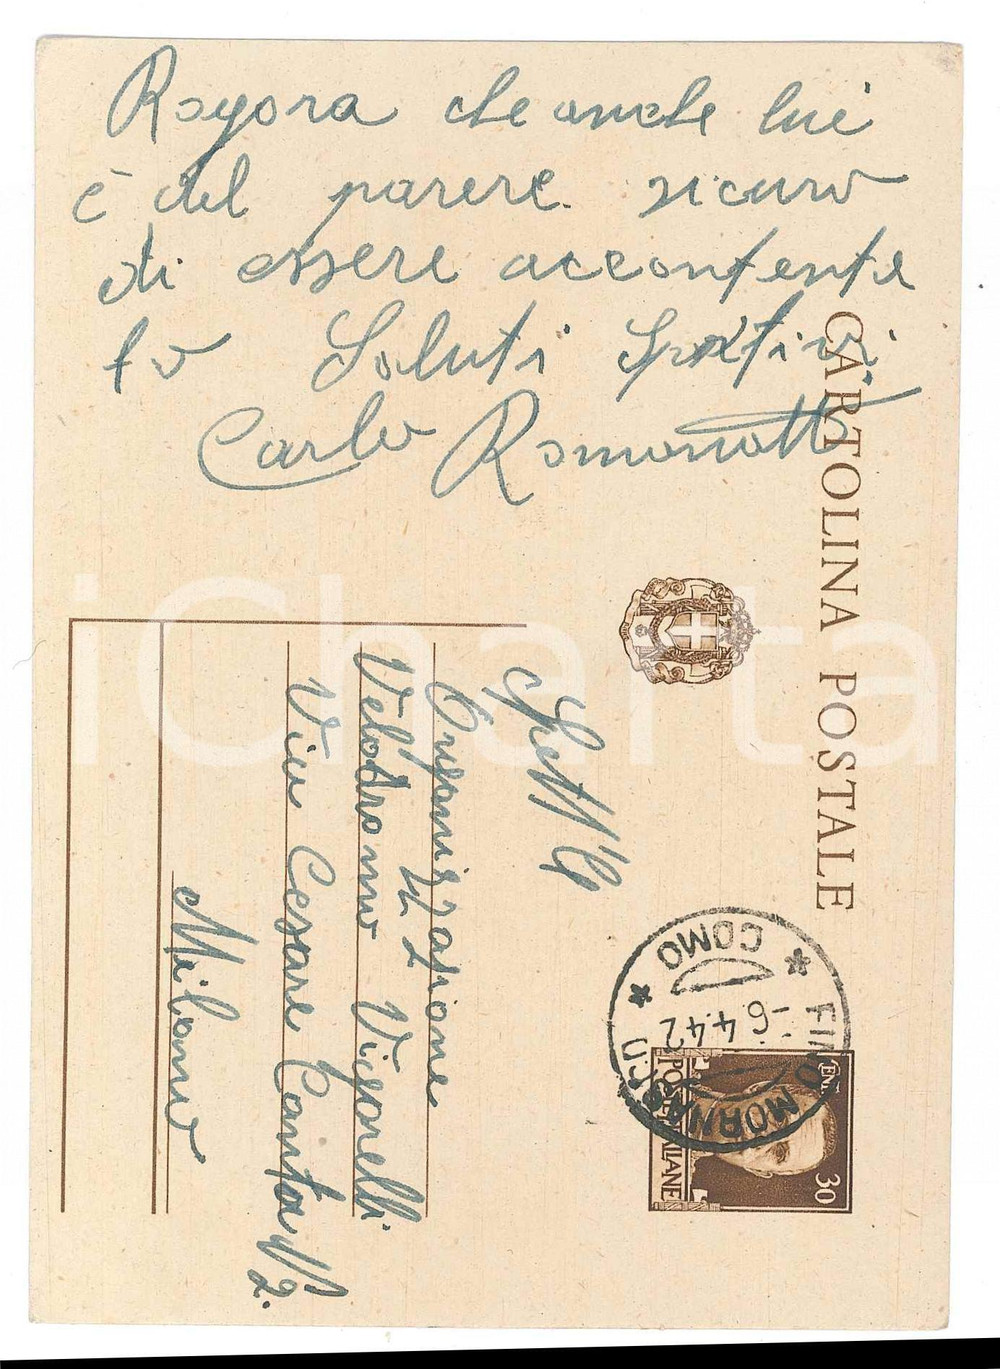 Rogora che anche lui
è del parere sicuro
di essere accontenta
to Saluti Sportivi
Carlo Romanatti
CARTOLINA POSTALE
Spett/le
Organizzazione
Velodromo Vigorelli
Via Cesare Cantù N/2.
Milano
FINO MORNASCO
* COMO *
-6.4.42
CENT. 30
POSTE ITALIANE
iCharta